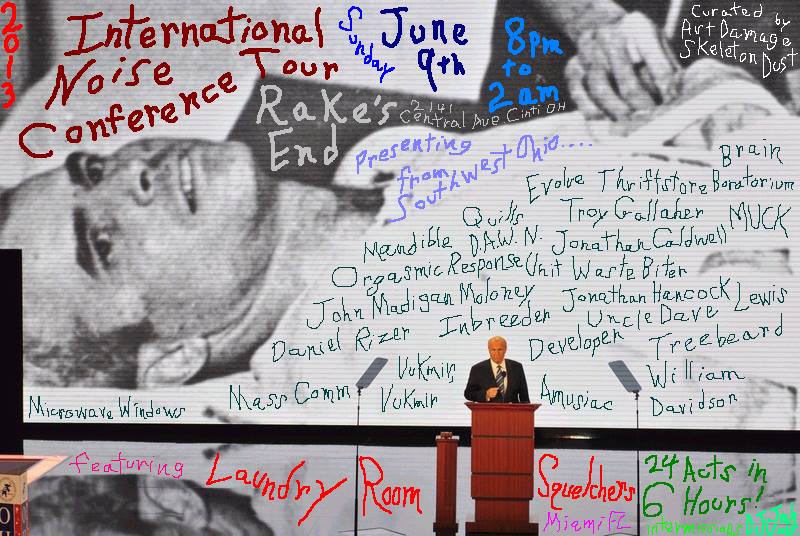 2013
International
Noise
Conference Tour
Sunday
June
9th
8pm
to
2am
Curated by
Art Damage
Skeleton Dust
Rake's
End
2141
Central Ave Cinti OH
Presenting
from
Southwest Ohio....
Evolve Thriftstore
Brain
Boratorium
Quills Troy Gallaher MUCK
Mandible D.A.W.N. Jonathan Caldwell
Orgasmic Response Unit Waste Biter
John Madigan Moloney Jonathan Hancock Lewis
Daniel Rizer Inbreeder Uncle Dave
Developer Treebeard
Microwave Windows
Mass Comm
Vukmir
Vukmir
Amusiac
William
Davidson
featuring
Laundry Room Squelchers
Miami FL
24 Acts in
6 Hours!
intermissions